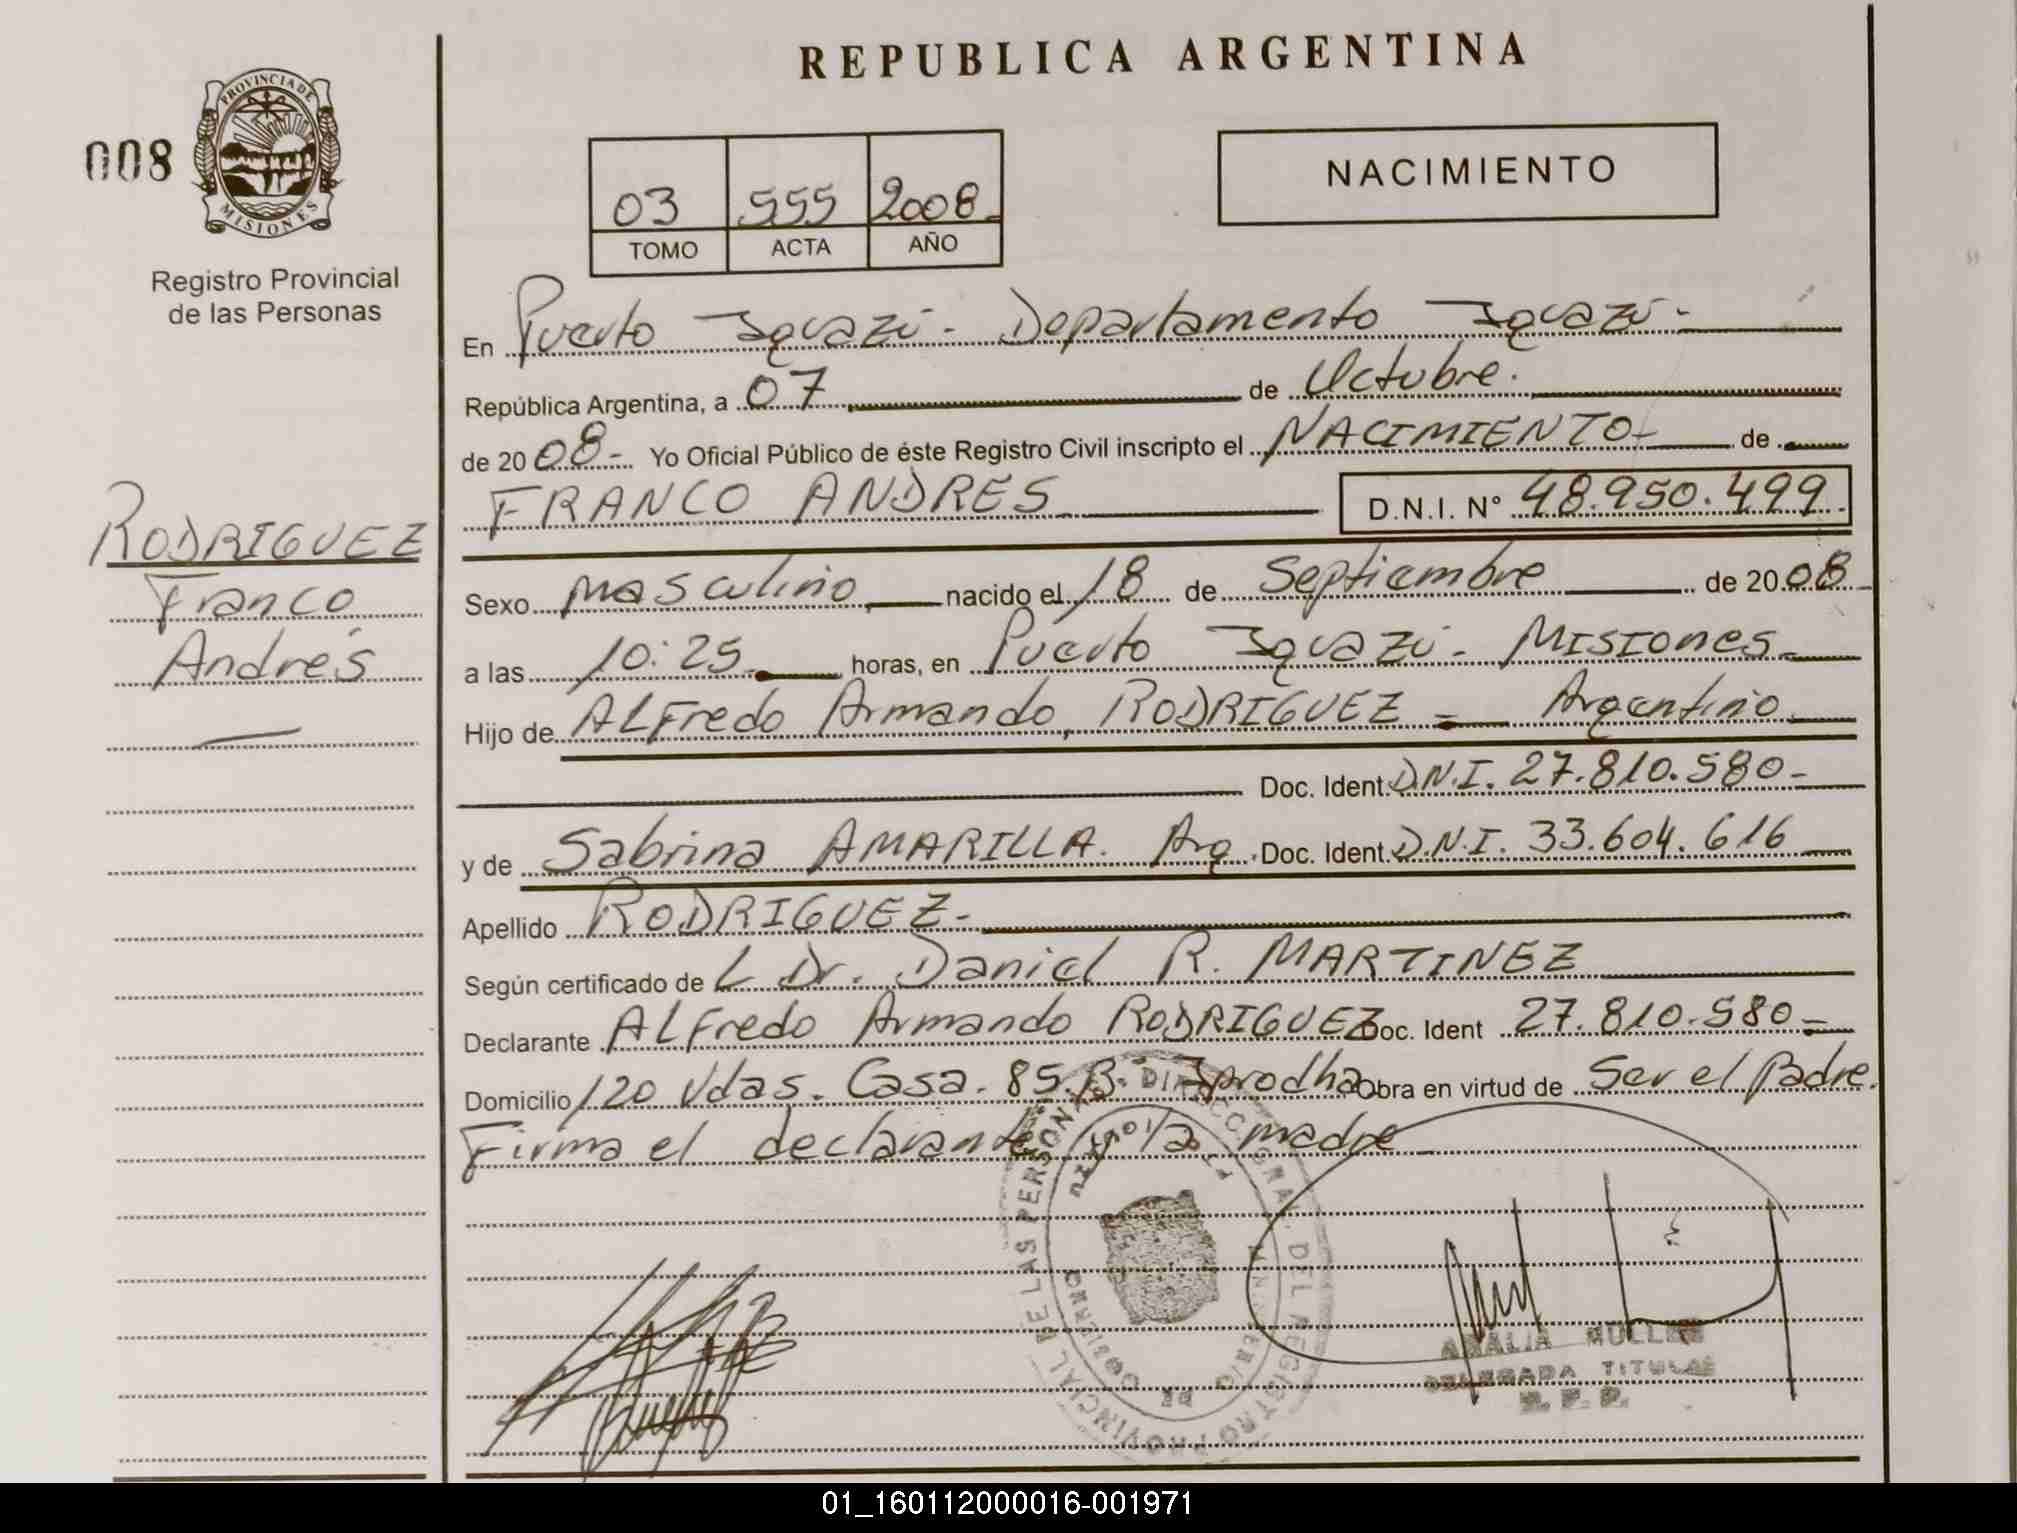 REPUBLICA ARGENTINA
PROVINCIA DE
MISIONES
008
Registro Provincial
de las Personas
03 555 2008
TOMO ACTA AÑO
NACIMIENTO
En Puerto Iguazú - Departamento Iguazú -
República Argentina, a 07 de Octubre.
de 2008 - Yo Oficial Público de éste Registro Civil inscripto el NACIMIENTO - de
FRANCO ANDRES D.N.I. N° 48.950.499
RODRIGUEZ
Franco
Andrés
Sexo masculino nacido el 18 de Septiembre de 2008
a las 10:25 horas, en Puerto Iguazú - Misiones -
Hijo de Alfredo Armando, RODRIGUEZ - Argentino
Doc. Ident. D.N.I. 27.810.580 -
y de Sabrina AMARILLA. Arg. Doc. Ident. D.N.I. 33.604.616
Apellido RODRIGUEZ -
Según certificado de L Dr. Daniel R. MARTINEZ
Declarante Alfredo Armando RODRIGUEZ Doc. Ident 27.810.580 -
Domicilio 120 Vdas. Casa. 85. B° Iprodha Obra en virtud de Ser el padre.
Firma el declarante y la madre
DIRECCION GRAL. DEL REGISTRO PROVINCIAL DE LAS PERSONAS
AMALIA MULLER
DELEGADA TITULAR
R. P. P.
01_160112000016-001971